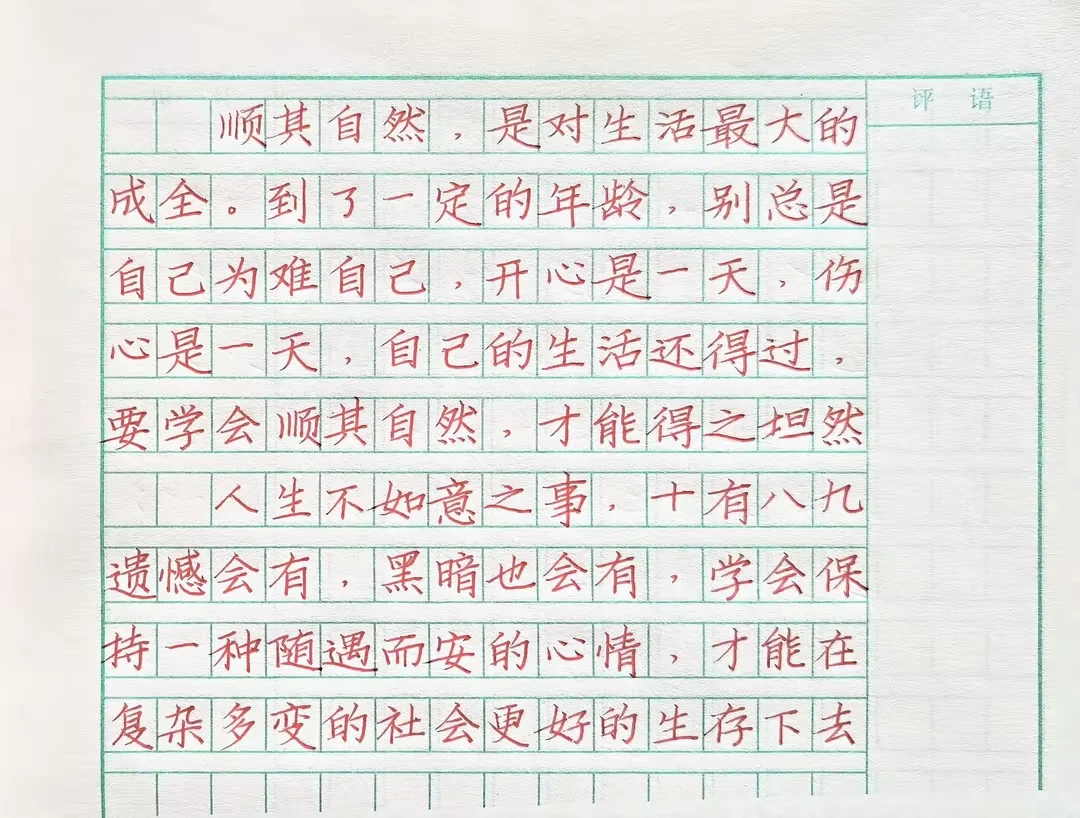 评 语
顺其自然，是对生活最大的
成全。到了一定的年龄，别总是
自己为难自己，开心是一天，伤
心是一天，自己的生活还得过，
要学会顺其自然，才能得之坦然
人生不如意之事，十有八九
遗憾会有，黑暗也会有，学会保
持一种随遇而安的心情，才能在
复杂多变的社会更好的生存下去